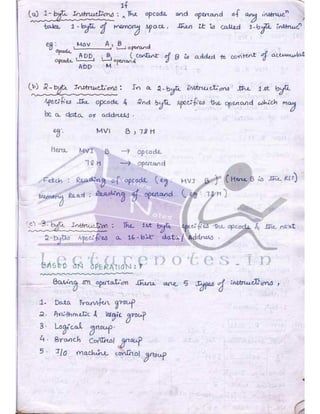 If
(a) 1-byte Instructions: The opcode and openand of any instruc^n
take 1-byte of memory space. then it is called 1-byte instruc^n
eg: MOV A, B openand
opcode ADD, B ( content of B is added to content of accumulat
opcode ADD M openand
(b) 2-Byte Instructions: In a 2-byte instructions the 1st byte
specifies the opcode & 2nd byte specifies the openand which may
be a data or address.
eg: MVI B, 72H
Here MVI B → opcode
72H → openand
Fetch: Reading of opcode (eg: MVI B) (Here B is the
Memory Read: Reading of openand. (eg: 72H)
(c) 3-byte Instruction: The 1st byte specifies the opcode & the next
2-bytes specifies a 16-bit data/Address.
Notes
Lecturenotes.in
BASED ON OPERATION:
Basing on operation there are 5 types of instructions,
1. Data Transfer group
2. Arithmetic & logic group
3. Logical group
4. Branch Control group
5. I/O machine control group